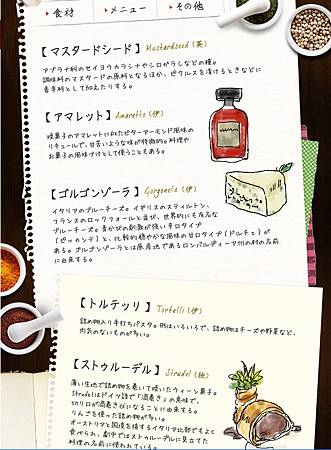 食材
メニュー
その他
【マスタードシード】Mustardseed (英)
アブラナ科のセイヨウカラシナやシロガラシなどの種。
調味料のマスタードの原料となるほか、ピクルスを漬けるときなどに
香辛料として加えたりする。
【アマレット】Amaretto (伊)
焼菓子のアマレットに似たビターアーモンド風味の
リキュールで、甘苦いような味が特徴的。料理や
お菓子の風味づけとして使うこともある。
【ゴルゴンゾーラ】Gorgonzola (伊)
イタリアのブルーチーズ。イギリスのスティルトン、
フランスのロックフォールと並び、世界的にも有名な
ブルーチーズ。青かびの刺激が強い辛口タイプ
(ピッカンテ)と、比較的穏やかな風味の甘口タイプ(ドルチェ)が
ある。ゴルゴンゾーラとは原産地であるロンバルディーア州の村の名前
に由来する。
【トルテッリ】Tortelli (伊)
詰め物入り手打ちパスタ。形はいろいろで、詰め物はチーズや野菜など、
肉気のないものが多い。
【ストゥルーデル】Strudel (独)
薄い生地で詰め物を巻いて焼いたウィーン菓子。
Strudelはドイツ語で「渦巻き」の意味で、
切り口が渦巻き状になることに由来する。
りんごを使った詰め物が多い。
オーストリアと国境を接するイタリア北部でもよく
食べられ、劇中ではストゥルーデルに見立てた
料理の名前に使われている。